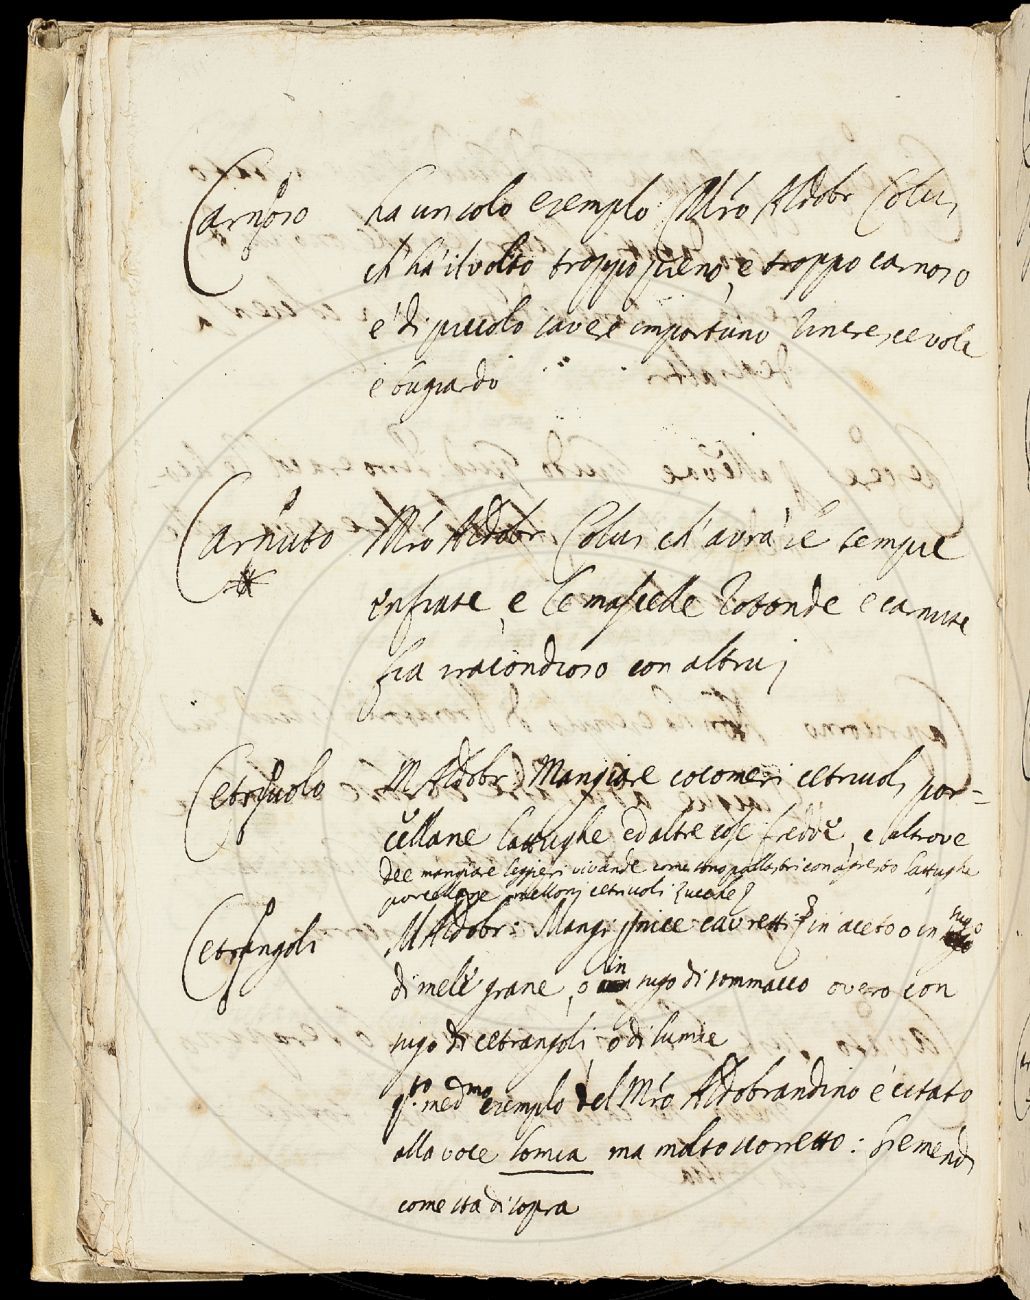 Carnoso ha un solo esempio Mro Aldobr Colui
ch' ha il volto troppo pieno, e troppo carnoso
e' di piccolo savere importuno
e bugiardo
Carnuto Mro Aldobr Colui ch' avrà le tempie
enfiate, e le mascelle rotonde e carnute
sia iracondioso con altrui
Cetriuolo M Aldobr. Mangiare cocomeri cetriuoli por=
cellane lattughe ed altre cose fredde, e altrove
dee mangiare leggieri vivande come sono pollastri con agresto lattughe
porcellane mellonj cetriuoli zucche
Cetrangoli M Aldobr. Mangi cavretti in aceto o in sugo
di mele grane, o in sugo di sommacco overo con
sugo di cetrangoli, o di lumie
q.to med.mo esempio del Mro Aldobrandino é citato
alla voce lomia ma molto scorretto: si emendi
come sta di sopra